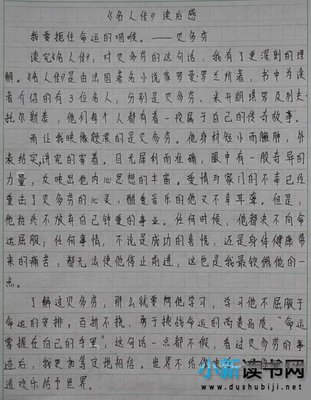 《名人传》读后感
我要扼住命运的咽喉。——贝多芬
读完《名人传》,对贝多芬的这句话,我有了更深刻的理
解。《名人传》是由法国著名小说家罗曼·罗兰所著,书中为读
者介绍的有3位名人,分别是贝多芬、米开朗琪罗及列夫·
托尔斯泰,他们每个人都有着一段属于自己的传奇故事。
而让我映像颇深的是贝多芬。他身材短小而臃肿,外
表结实,
目光犀利而准确,眼中有一股奇异的
力量,反映出他内心思想的丰富。爱情与家门的不幸已经
重击了贝多芬的心灵,酷爱音乐的他又不幸耳聋。但是,
他始终不放弃自己钟爱的事业。任何时候,他都未不向命
运屈服,任何事情,不说是成功的喜悦,还是身体健康带
来的痛苦,都无法使他停止前进。这也是我最钦佩他的一
点。
了解过贝多芬,那么就要向他学习,学习他不屈服于
命运的安排,百折不挠、勇于挑战命运的高贵品质。“命运
掌握在自己的手里”,这句话一点都不假,看过贝多芬的事
迹后,我更加坚定地相信。世界不给他
造欢乐给予世界。
小新读书网
www.dushubiji.net